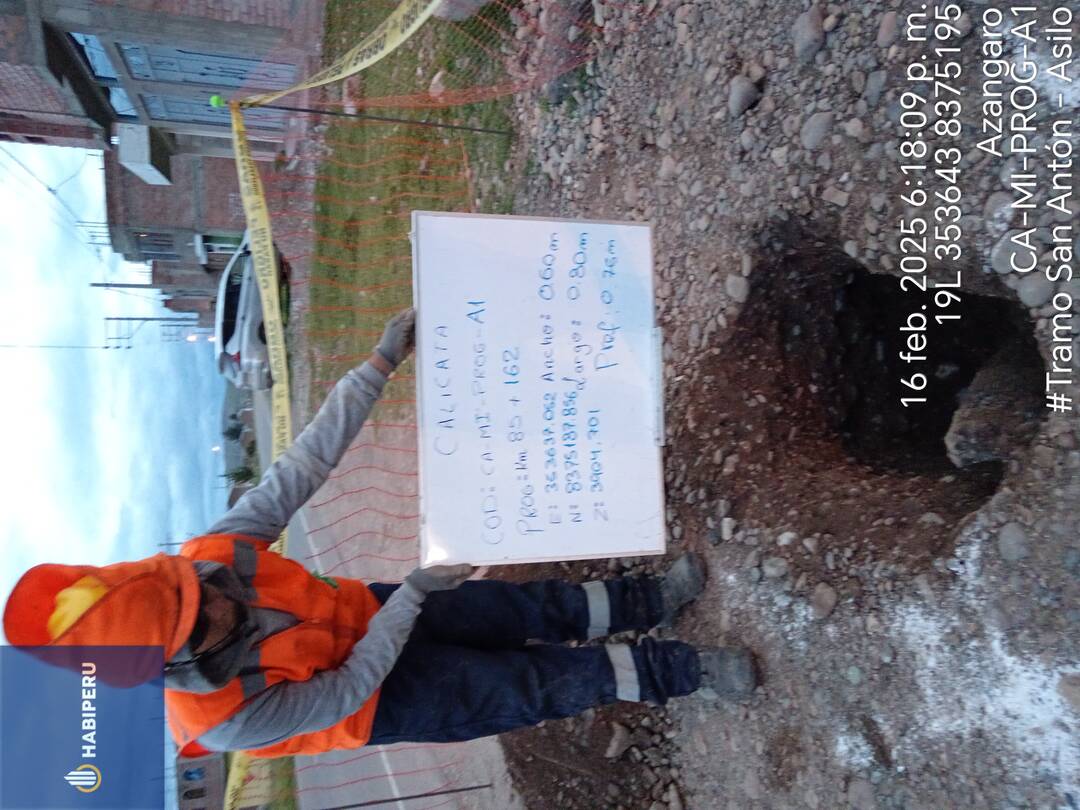 HABIPERU
CALICATA
COD: CA-MI-PROG-A1
PROG: Km 85 + 162
E: 353637.062 Ancho: 0.60m
N: 8375187.856 Largo: 0.80m
Z: 3904.701 Prof: 0.76m
16 feb. 2025 6:18:09 p. m.
19L 353643 8375195
Azangaro
CA-MI-PROG-A1
#Tramo San Antón - Asilo